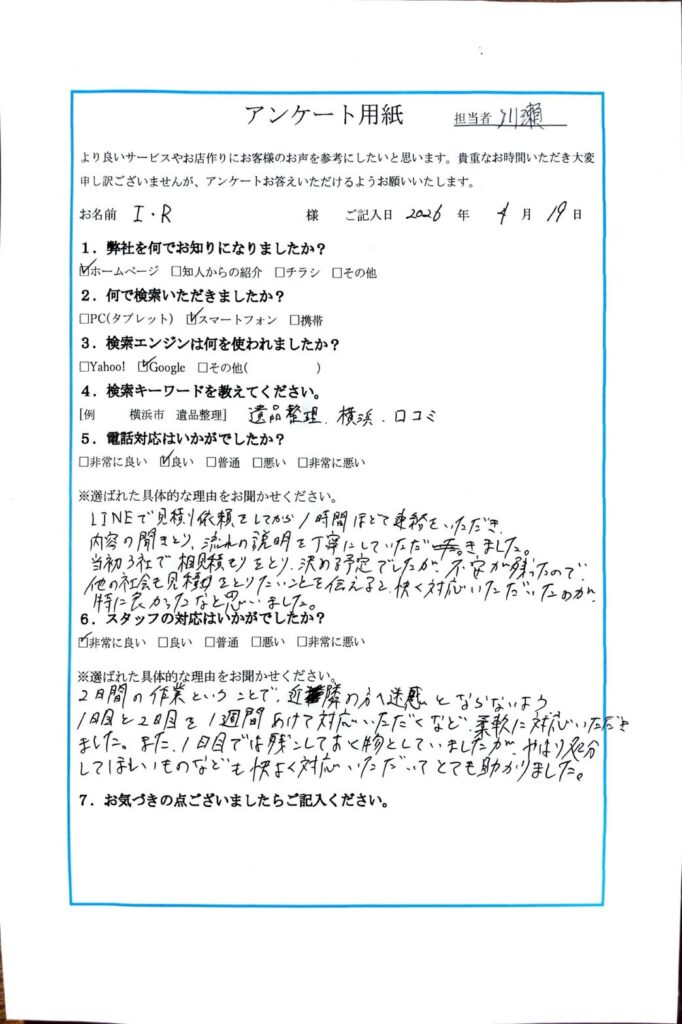 アンケート用紙 担当者 川瀬
より良いサービスやお店作りにお客様のお声を参考にしたいと思います。貴重なお時間いただき大変
申し訳ございませんが、アンケートお答えいただけるようお願いいたします。
お名前 I・R 様 ご記入日 2026 年 4 月 19 日
1．弊社を何でお知りになりましたか？
☑ホームページ □知人からの紹介 □チラシ □その他
2．何で検索いただきましたか？
□PC(タブレット) ☑スマートフォン □携帯
3．検索エンジンは何を使われましたか？
□Yahoo! ☑Google □その他( )
4．検索キーワードを教えてください。
[例 横浜市 遺品整理] 遺品整理、横浜、口コミ
5．電話対応はいかがでしたか？
□非常に良い ☑良い □普通 □悪い □非常に悪い
※選ばれた具体的な理由をお聞かせください。
LINEで見積り依頼をしてから1時間ほどで連絡をいただき、
内容の聞きとり、流れの説明を丁寧にしていただきました。
当初3社で相見積もりをとり、決める予定でしたが、不安が残ったので、
他の社会も見積りをとりたいことを伝えると、快く対応いただいたのが、
特に良かったなと思いました。
6．スタッフの対応はいかがでしたか？
☑非常に良い □良い □普通 □悪い □非常に悪い
※選ばれた具体的な理由をお聞かせください。
2日間の作業ということで、近隣の方へ迷惑とならないよう
1日目と2日目を1週間あけて対応いただくなど、柔軟に対応いただき
ました。また、1日目では残こしておく物としていましたが、やはり処分
してほしいものなども快よく対応いただいてとても助かりました。
7．お気づきの点ございましたらご記入ください。